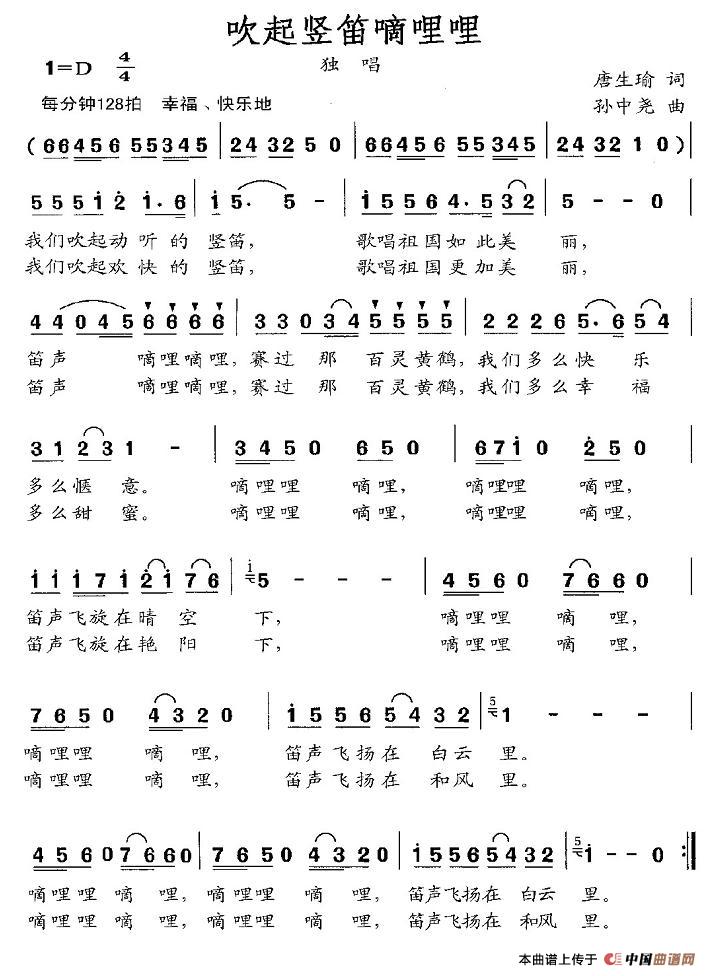 吹起竖笛嘀哩哩
1=D 4/4
独 唱
唐生瑜 词
每分钟128拍 幸福、快乐地
孙中尧 曲
( 66456 55345 | 24 32 5 0 | 66456 55345 | 24 32 1 0 )
5 5 5 1 2 1·6 | 1 5· 5 - | 1 5 5 6 4·5 3 2 | 5 - - 0
我们吹起动 听 的 竖笛, 歌唱祖国如此美 丽,
我们吹起欢 快 的 竖笛, 歌唱祖国更加美 丽,
4 4 0 4 5 6 6 6 6 | 3 3 0 3 4 5 5 5 5 | 2 2 2 6 5·6 5 4
笛声 嘀哩嘀哩,赛过 那 百灵黄鹤,我们多么快 乐
笛声 嘀哩嘀哩,赛过 那 百灵黄鹤,我们多么幸 福
3 1 2 3 1 - | 3 4 5 0 6 5 0 | 6 7 1 0 2 5 0
多么惬 意。 嘀哩哩 嘀哩, 嘀哩哩 嘀哩,
多么甜 蜜。 嘀哩哩 嘀哩, 嘀哩哩 嘀哩,
1 1 1 7 1 2 1 7 6 | 1 5 - - - | 4 5 6 0 7 6 6 0
笛声飞旋在晴 空 下, 嘀哩哩 嘀 哩,
笛声飞旋在艳 阳 下, 嘀哩哩 嘀 哩,
7 6 5 0 4 3 2 0 | 1 5 5 6 5 4 3 2 | 5 1 - - 0
嘀哩哩 嘀 哩, 笛声飞扬在 白云 里。
嘀哩哩 嘀 哩, 笛声飞扬在 和风 里。
4 5 6 0 7 6 6 0 | 7 6 5 0 4 3 2 0 | 1 5 5 6 5 4 3 2 | 5 1 - - 0 :‖
嘀哩哩 嘀 哩, 嘀哩哩 嘀 哩, 笛声飞扬在 白云 里。
嘀哩哩 嘀 哩, 嘀哩哩 嘀 哩, 笛声飞扬在 和风 里。
本曲谱上传于 中国曲谱网